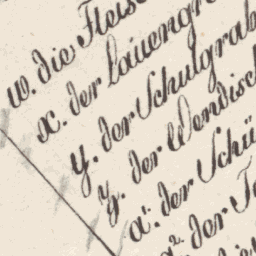 w. die Fleisc
x. der Löwengr
y. der Schulgrab
z. der Wendisch
a¹. der Schü
a². der